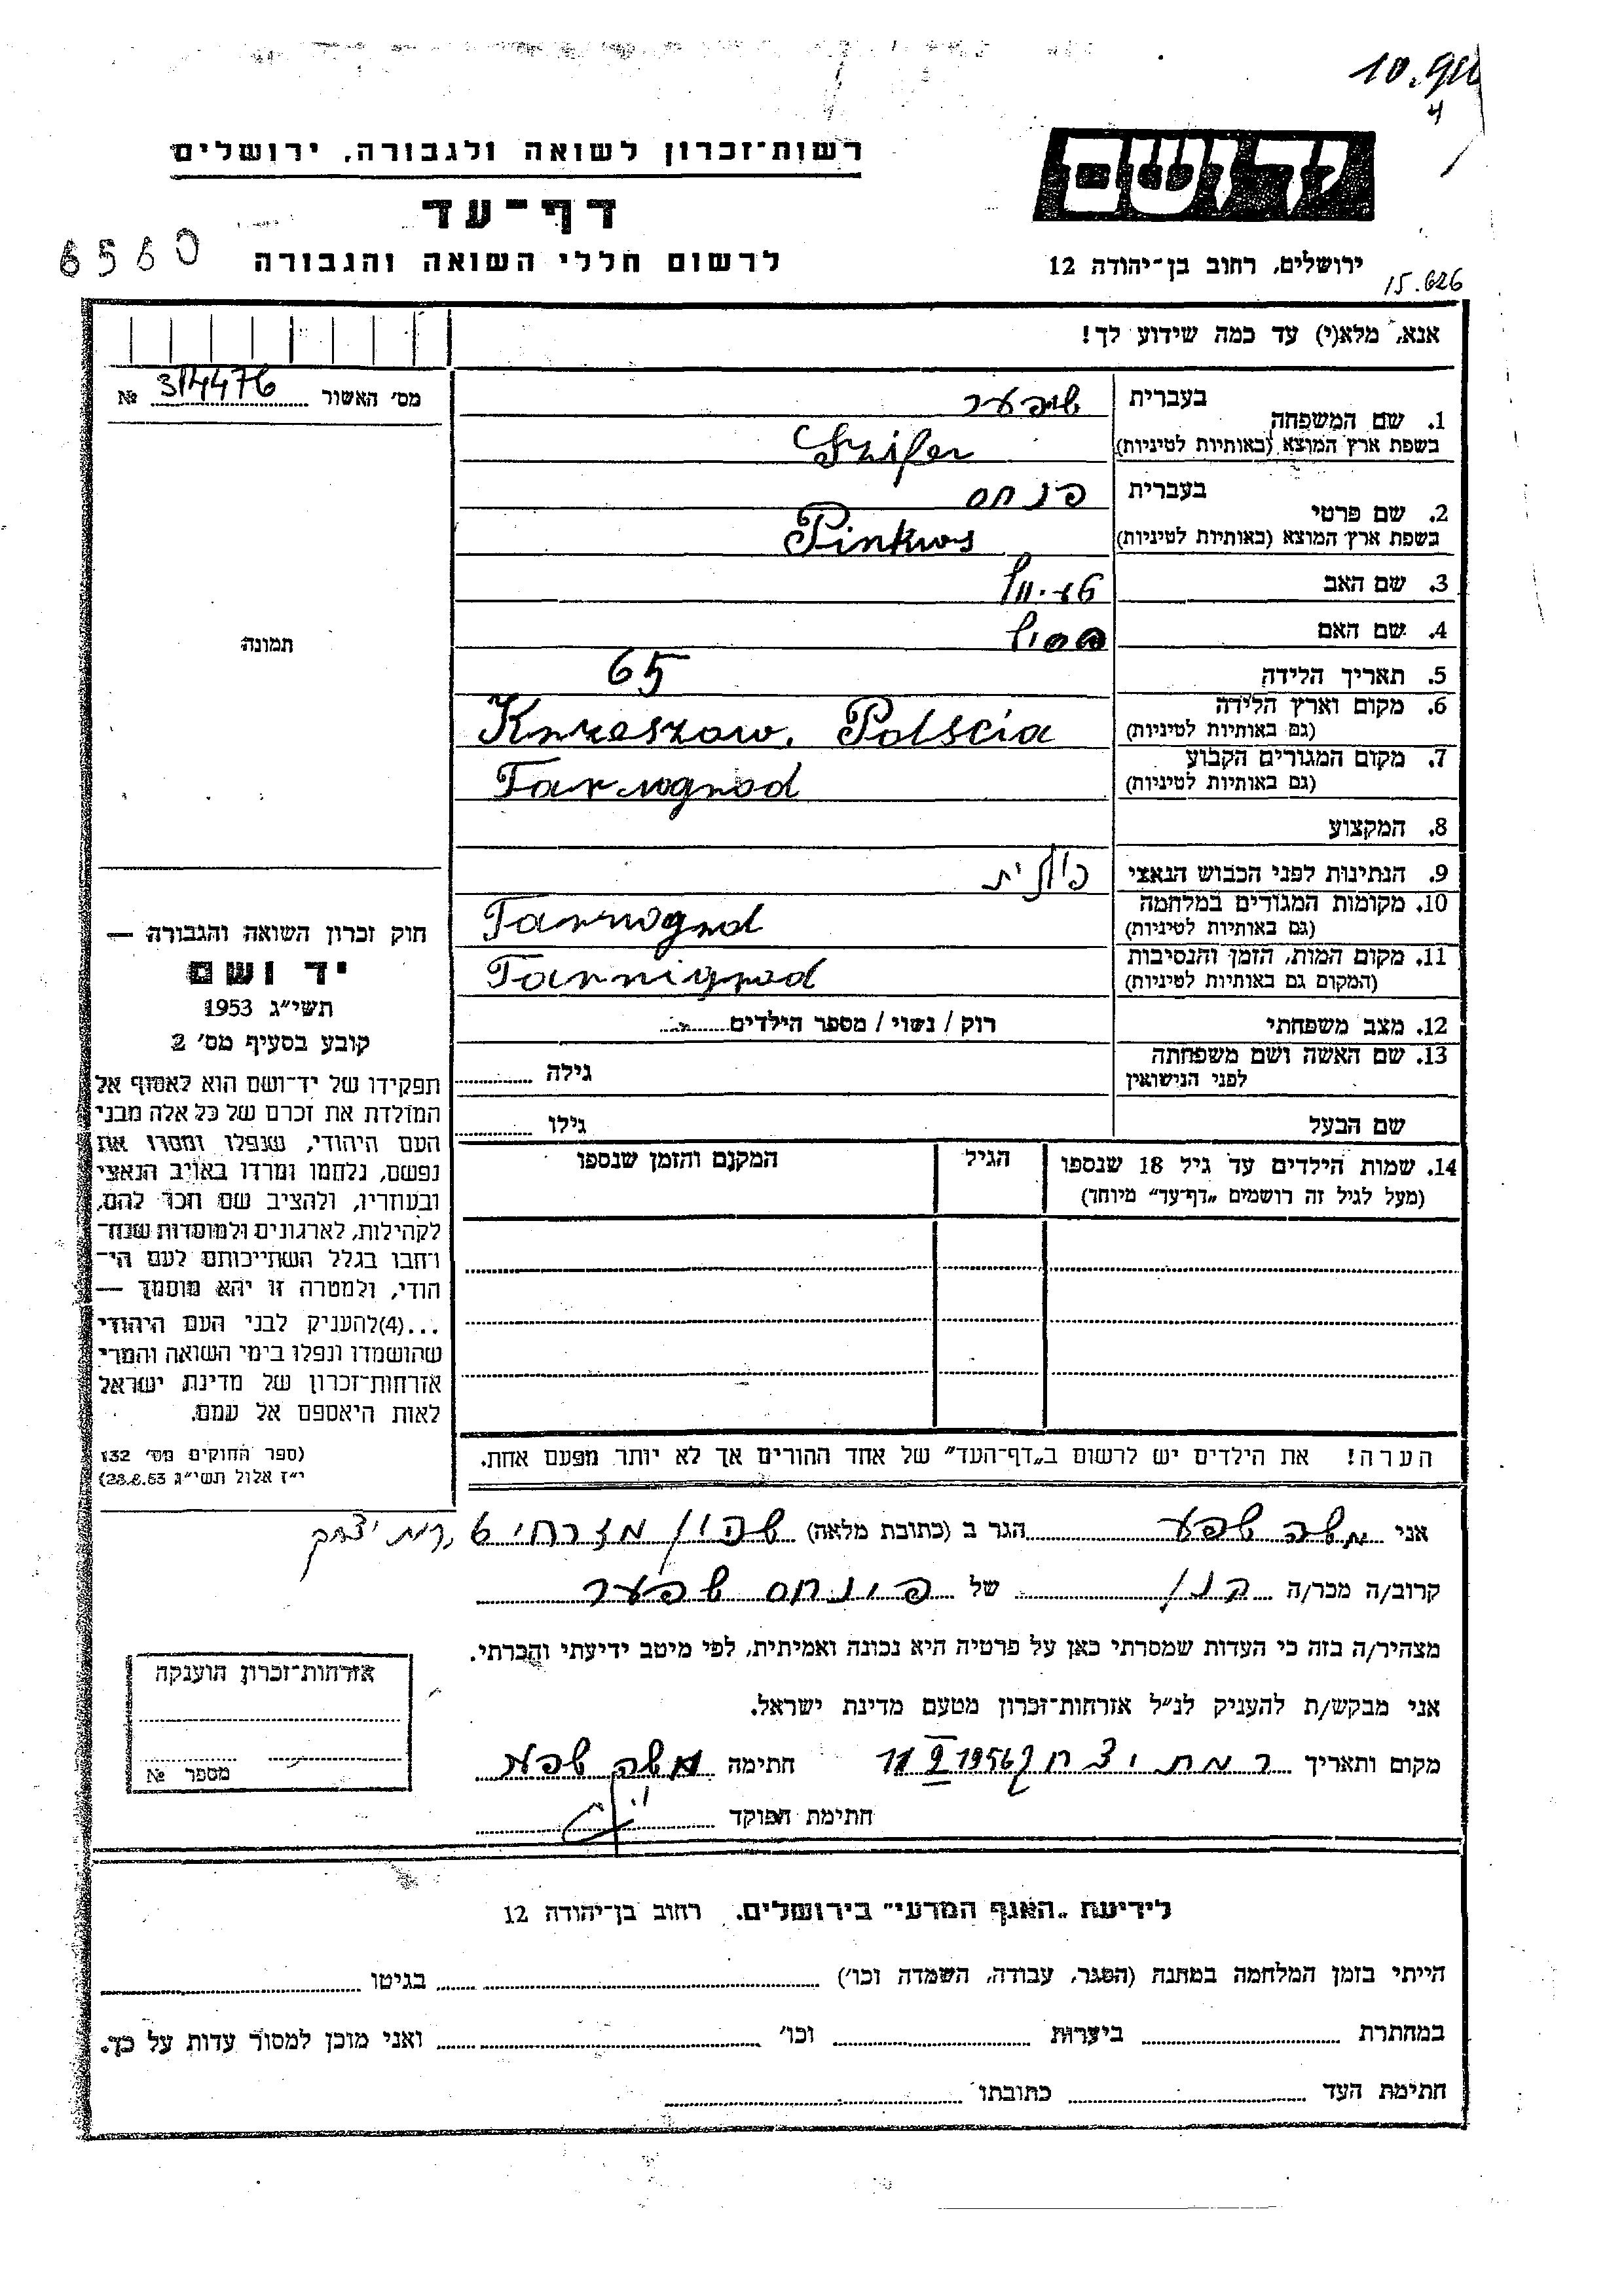 10.9
4
רשות־זכרון לשואה ולגבורה, ירושלים
ידושם
דף־עד
לרשום חללי השואה והגבורה
6560
ירושלים, רחוב בן־יהודה 12
15.626
אנא, מלא(י) עד כמה שידוע לך!
מס׳ האשור 314476 №
1. שם המשפחה
בעברית שיפער
בשפת ארץ המוצא (באותיות לטיניות) Szifer
2. שם פרטי
בעברית פנחס
בשפת ארץ המוצא (באותיות לטיניות) Pinkwos
3. שם האב
4. שם האם
תמונה
5. תאריך הלידה 65
6. מקום וארץ הלידה Krzeszow. Polscia
(גם באותיות לטיניות)
7. מקום המגורים הקבוע Tarnogrod
(גם באותיות לטיניות)
8. המקצוע
9. הנתינות לפני הכבוש הנאצי פולנית
10. מקומות המגורים במלחמה Tarnogrod
(גם באותיות לטיניות)
11. מקום המות, הזמן והנסיבות Tarnigrod
(המקום גם באותיות לטיניות)
12. מצב משפחתי רוק / נשוי / מספר הילדים
13. שם האשה ושם משפחתה גילה
לפני הנישואין
שם הבעל גילו
14. שמות הילדים עד גיל 18 שנספו הגיל המקום והזמן שנספו
(מעל לגיל זה רושמים „דף־עד״ מיוחד)
הערה! את הילדים יש לרשום ב„דף־העד״ של אחד ההורים אך לא יותר מפעם אחת.
חוק זכרון השואה והגבורה —
יד ושם
תשי״ג 1953
קובע בסעיף מס׳ 2
תפקידו של יד־ושם הוא לאסוף אל
המולדת את זכרם של כל אלה מבני
העם היהודי, שנפלו ומסרו את
נפשם, נלחמו ומרדו באויב הנאצי
ובעוזריו, ולהציב שם וזכר להם,
לקהילות, לארגונים ולמוסדות שנח־
רבו בגלל השתייכותם לעם הי־
הודי, ולמטרה זו יהא מוסמך —
...(4)להעניק לבני העם היהודי
שהושמדו ונפלו בימי השואה והמרי
אזרחות־זכרון של מדינת ישראל
לאות היאספם אל עמם.
(ספר החוקים מס׳ 132
י״ז אלול תשי״ג 28.8.53)
אני משה שפער הגר ב (כתובת מלאה) שכון מזרחי 6, רמת יצחק
קרוב/ה מכר/ה בנו של פינחס שפער
מצהיר/ה בזה כי העדות שמסרתי כאן על פרטיה היא נכונה ואמיתית, לפי מיטב ידיעתי והכרתי.
אני מבקש/ת להעניק לנ״ל אזרחות־זכרון מטעם מדינת ישראל.
מקום ותאריך רמת יצחק 1956 חתימה משה שפער
חתימת הפוקד
אזרחות־זכרון הוענקה
מספר №
לידיעת „האגף המדעי״ בירושלים, רחוב בן־יהודה 12
הייתי בזמן המלחמה במחנה (הסגר, עבודה, השמדה וכו׳) בגיטו
במחתרת ביערות וכו׳ ואני מוכן למסור עדות על כך.
חתימת העד כתובתו